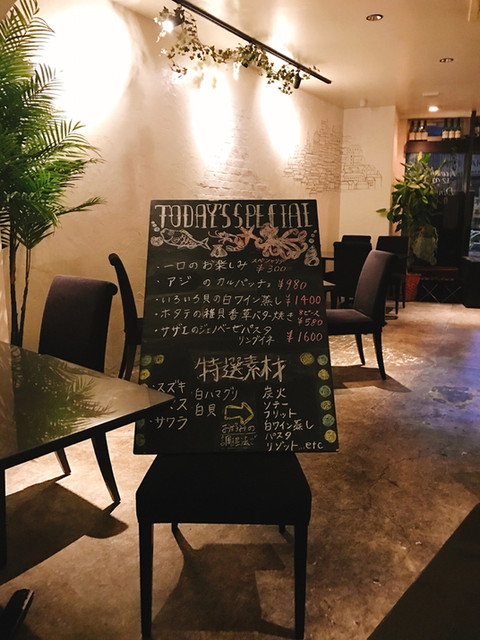 TODAY'S SPECIAL
・一口のお楽しみ スペシャリテ ¥300
・アジのカルパッチョ ¥980
・いろいろ貝の白ワイン蒸し ¥1400
・ホタテの稚貝香草バター焼き 8ピース ¥580
・サザエのジェノベーゼパスタ リングイネ ¥1600
特選素材
・スズキ
・サワラ
・白ハマグリ
・白貝
お好みの
調理法で
炭火
ソテー
フリット
白ワイン蒸し
パスタ
リゾット etc